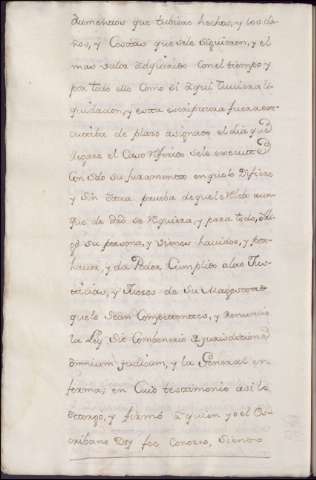 aumentos que tubiere hechos, y los da
ños, y Costas que sele siguieren, y el
mas valor adquirido con el tiempo y
por todo ello como si aqui tuviera li
quidacion, y esta escriptura fuera exe
cutiva de plazo asignado el dia que
llegare el Caso referido se le execute
con solo su Juramento en que lo difiere
y sin otra prueba de que le releva aun
que de dro se requiera, y para todo, obli
gò su persona, y vienes havidos, y por
haver, y da Poder Cumplido a las Jus
ticias, y Jueces de Su Magestad
que le sean Competentes, y renuncia
la Ley Sit Combenerit de Jurisdictione
omnium Judicum, y la General en
forma; en Cuio testimonio asi lo
otorgo, y firmó a quien yo el Es
cribano Doy fee Conozco, siendo